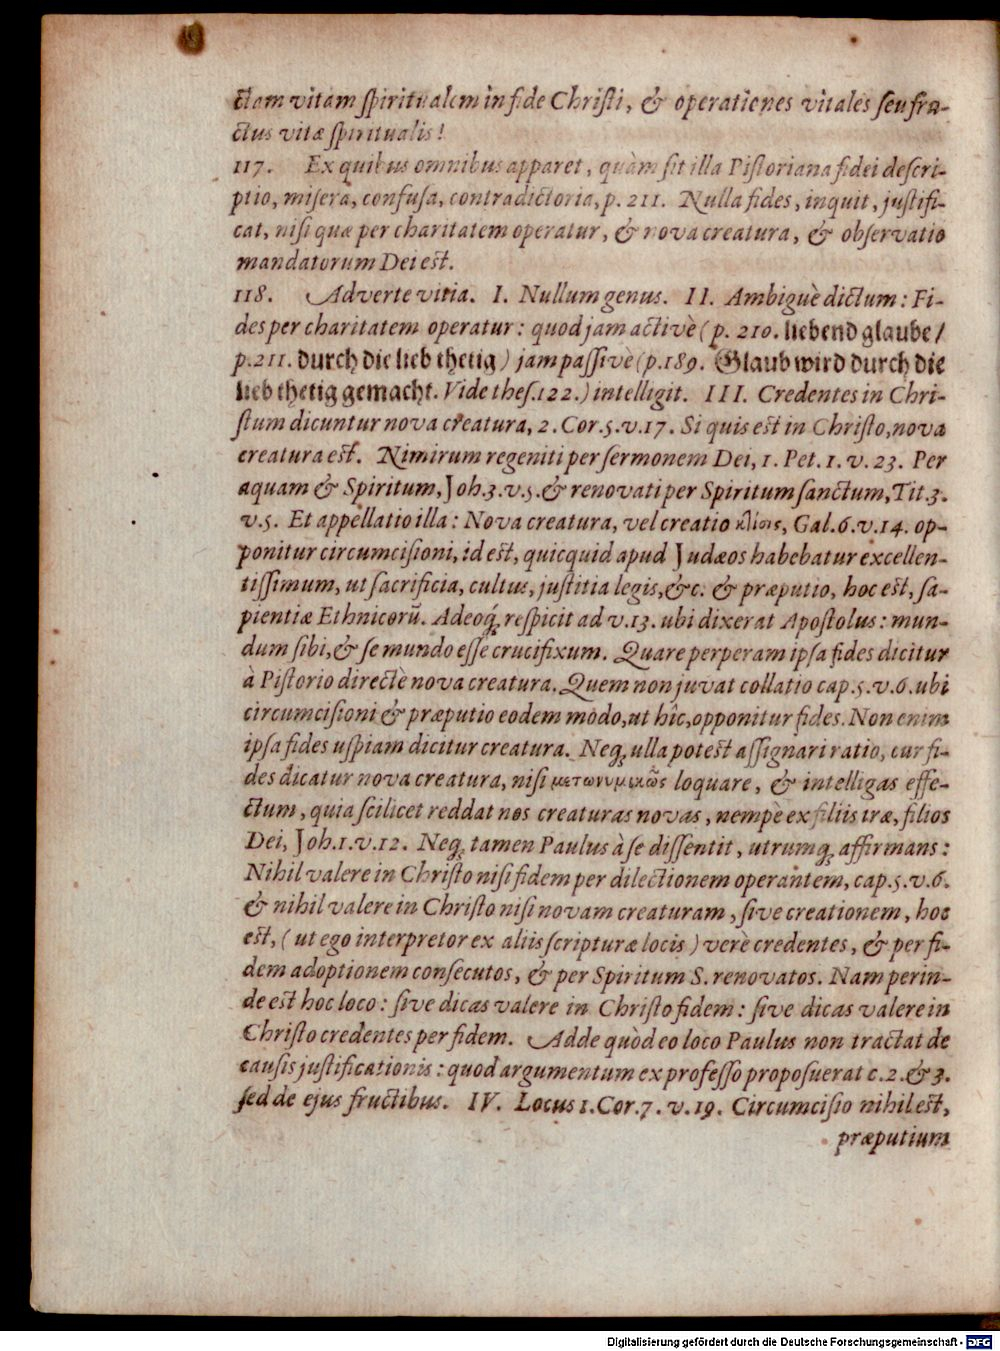 ctam vitam spiritualem in fide Christi, & operationes vitales seu fru-
ctus vitæ spiritualis!
117. Ex quibus omnibus apparet, quàm sit illa Pistoriana fidei descri-
ptio, misera, confusa, contradictoria, p. 211. Nulla fides, inquit, justifi-
cat, nisi quæ per charitatem operatur, & nova creatura, & observatio
mandatorum Dei est.
118. Adverte vitia. I. Nullum genus. II. Ambiguè dictum: Fi-
des per charitatem operatur: quod jam activè (p. 210. liebend glaube/
p. 211. durch die lieb thetig) jam passivè (p. 189. Glaub wird durch die
lieb thetig gemacht. Vide thes. 122.) intelligit. III. Credentes in Chri-
stum dicuntur nova creatura, 2. Cor. 5. v. 17. Si quis est in Christo, nova
creatura est. Nimirum regeniti per sermonem Dei, 1. Pet. 1. v. 23. Per
aquam & Spiritum, Joh. 3. v. 5. & renovati per Spiritum sanctum, Tit. 3.
v. 5. Et appellatio illa: Nova creatura, vel creatio κλίσις, Gal. 6. v. 14. op-
ponitur circumcisioni, id est, quicquid apud Judæos habebatur excellen-
tissimum, ut sacrificia, cultus, justitia legis, &c. & præputio, hoc est, sa-
pientiæ Ethnicorũ. Adeoq́; respicit ad v. 13. ubi dixerat Apostolus: mun-
dum sibi, & se mundo esse crucifixum. Quare perperam ipsa fides dicitur
à Pistorio directè nova creatura. Quem non juvat collatio cap. 5. v. 6. ubi
circumcisioni & præputio eodem modo, ut hîc, opponitur fides. Non enim
ipsa fides uspiam dicitur creatura. Neq; ulla potest assignari ratio, cur fi-
des dicatur nova creatura, nisi μετωνυμικῶς loquare, & intelligas effe-
ctum, quia scilicet reddat nos creaturas novas, nempè ex filiis iræ, filios
Dei, Joh. 1. v. 12. Neq; tamen Paulus à se dissentit, utrumq; affirmans:
Nihil valere in Christo nisi fidem per dilectionem operantem, cap. 5. v. 6.
& nihil valere in Christo nisi novam creaturam, sive creationem, hoc
est, (ut ego interpretor ex aliis scripturæ locis) verè credentes, & per fi-
dem adoptionem consecutos, & per Spiritum S. renovatos. Nam perin-
de est hoc loco: sive dicas valere in Christo fidem: sive dicas valere in
Christo credentes per fidem. Adde quòd eo loco Paulus non tractat de
causis justificationis: quod argumentum ex professo proposuerat c. 2. & 3.
sed de ejus fructibus. IV. Locus 1. Cor. 7. v. 19. Circumcisio nihil est,
præputium
Digitalisierung gefördert durch die Deutsche Forschungsgemeinschaft - DFG